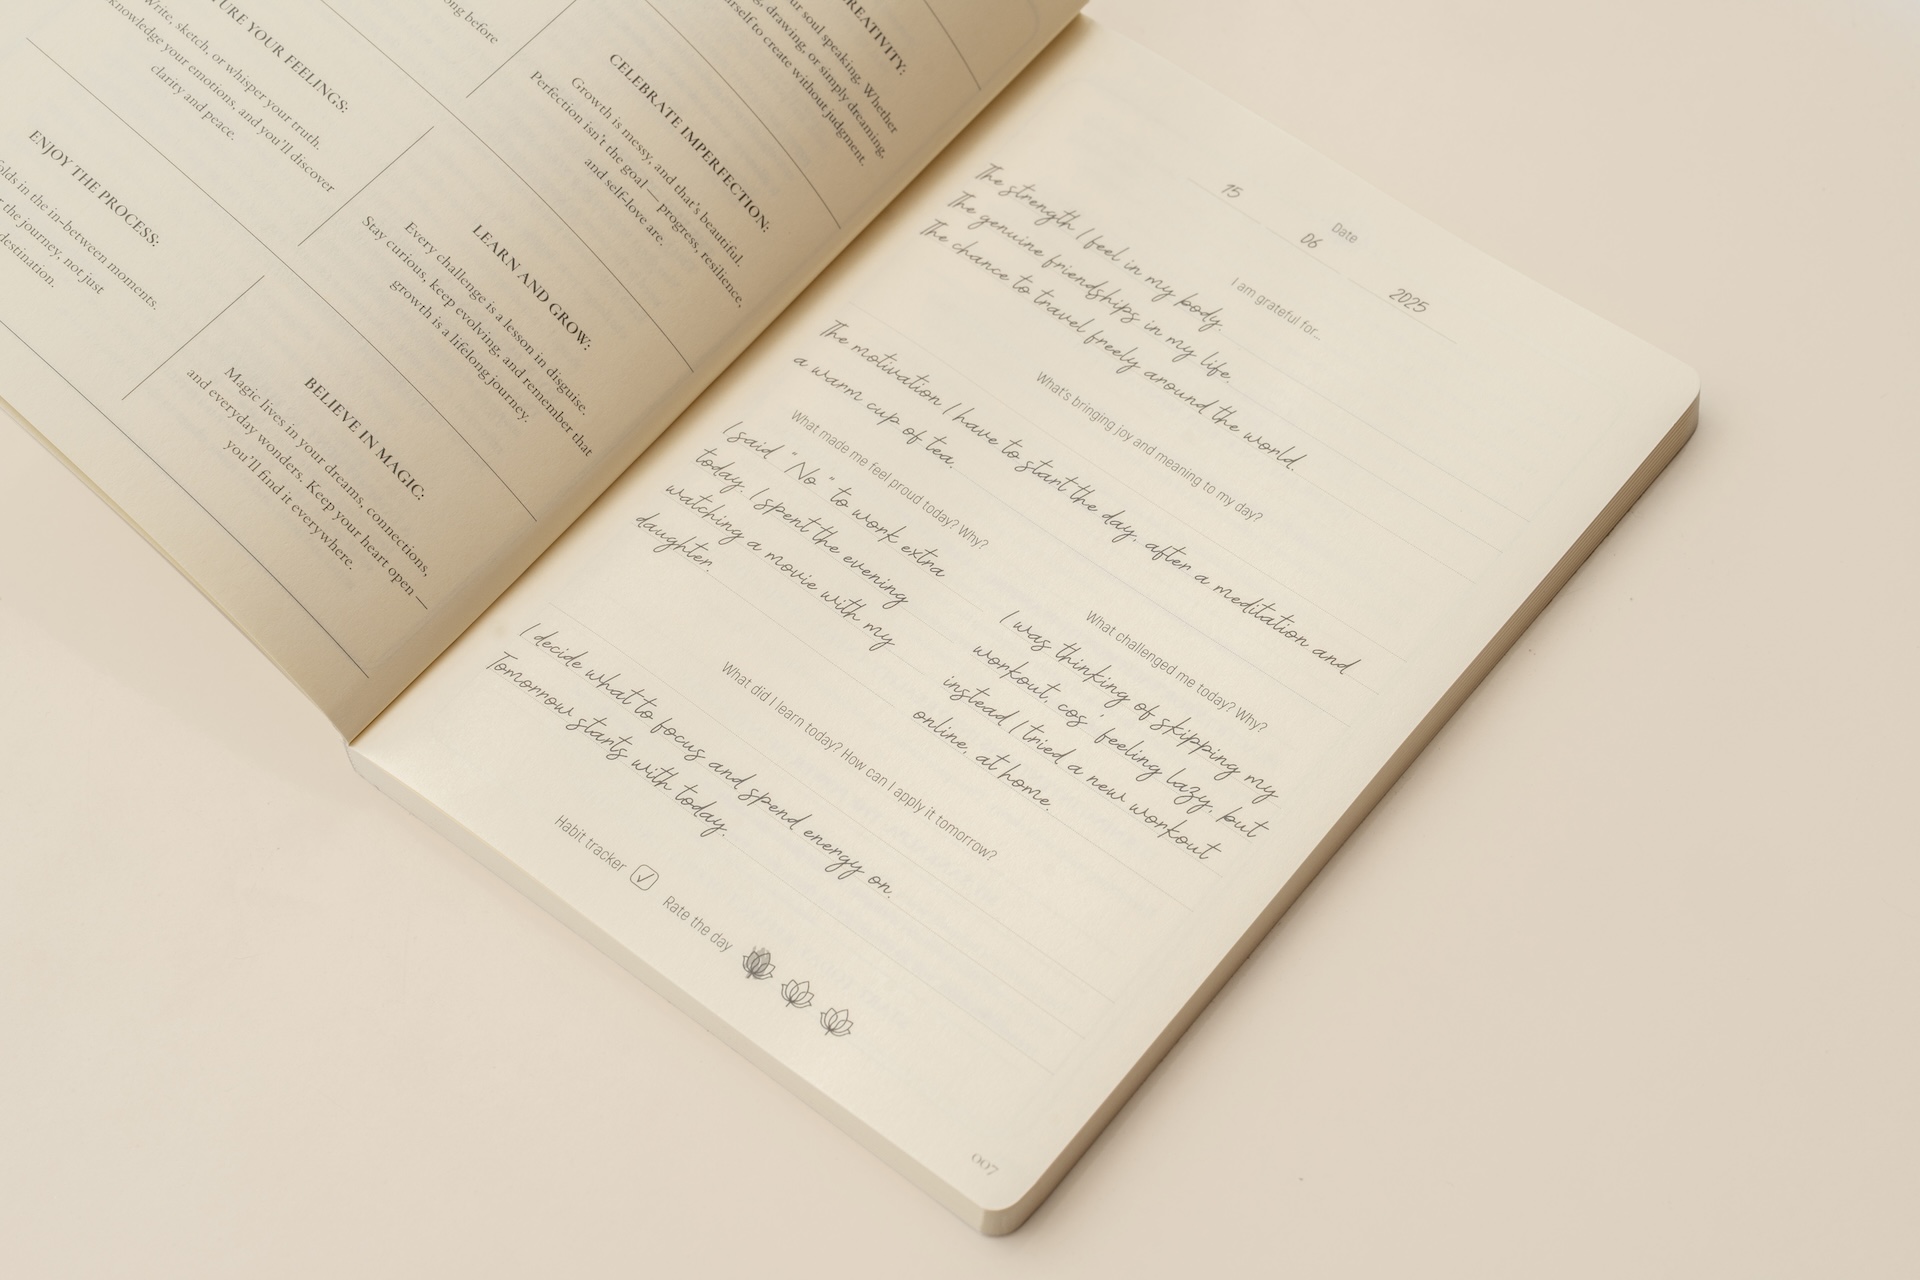 TURE YOUR FEELINGS:
Write, sketch, or whisper your truth.
knowledge your emotions, and you'll discover
clarity and peace.
ong before
REATIVITY:
ur soul speaking. Whether
g, drawing, or simply dreaming,
rself to create without judgment.
ENJOY THE PROCESS:
olds in the in-between moments.
r the journey, not just
destination.
CELEBRATE IMPERFECTION:
Growth is messy, and that's beautiful.
Perfection isn't the goal — progress, resilience,
and self-love are.
LEARN AND GROW:
Every challenge is a lesson in disguise.
Stay curious, keep evolving, and remember that
growth is a lifelong journey.
BELIEVE IN MAGIC:
Magic lives in your dreams, connections,
and everyday wonders. Keep your heart open —
you'll find it everywhere.
Date
15 06 2025
I am grateful for...
The strength I feel in my body.
The genuine friendships in my life.
The chance to travel freely around the world.
What's bringing joy and meaning to my day?
The motivation I have to start the day, after a meditation and
a warm cup of tea.
What made me feel proud today? Why?
I said "No" to work extra
today. I spent the evening
watching a movie with my
daughter.
What challenged me today? Why?
I was thinking of skipping my
workout, cos' feeling lazy, but
instead I tried a new workout
online, at home.
What did I learn today? How can I apply it tomorrow?
I decide what to focus and spend energy on.
Tomorrow starts with today.
Habit tracker ✓ Rate the day
007